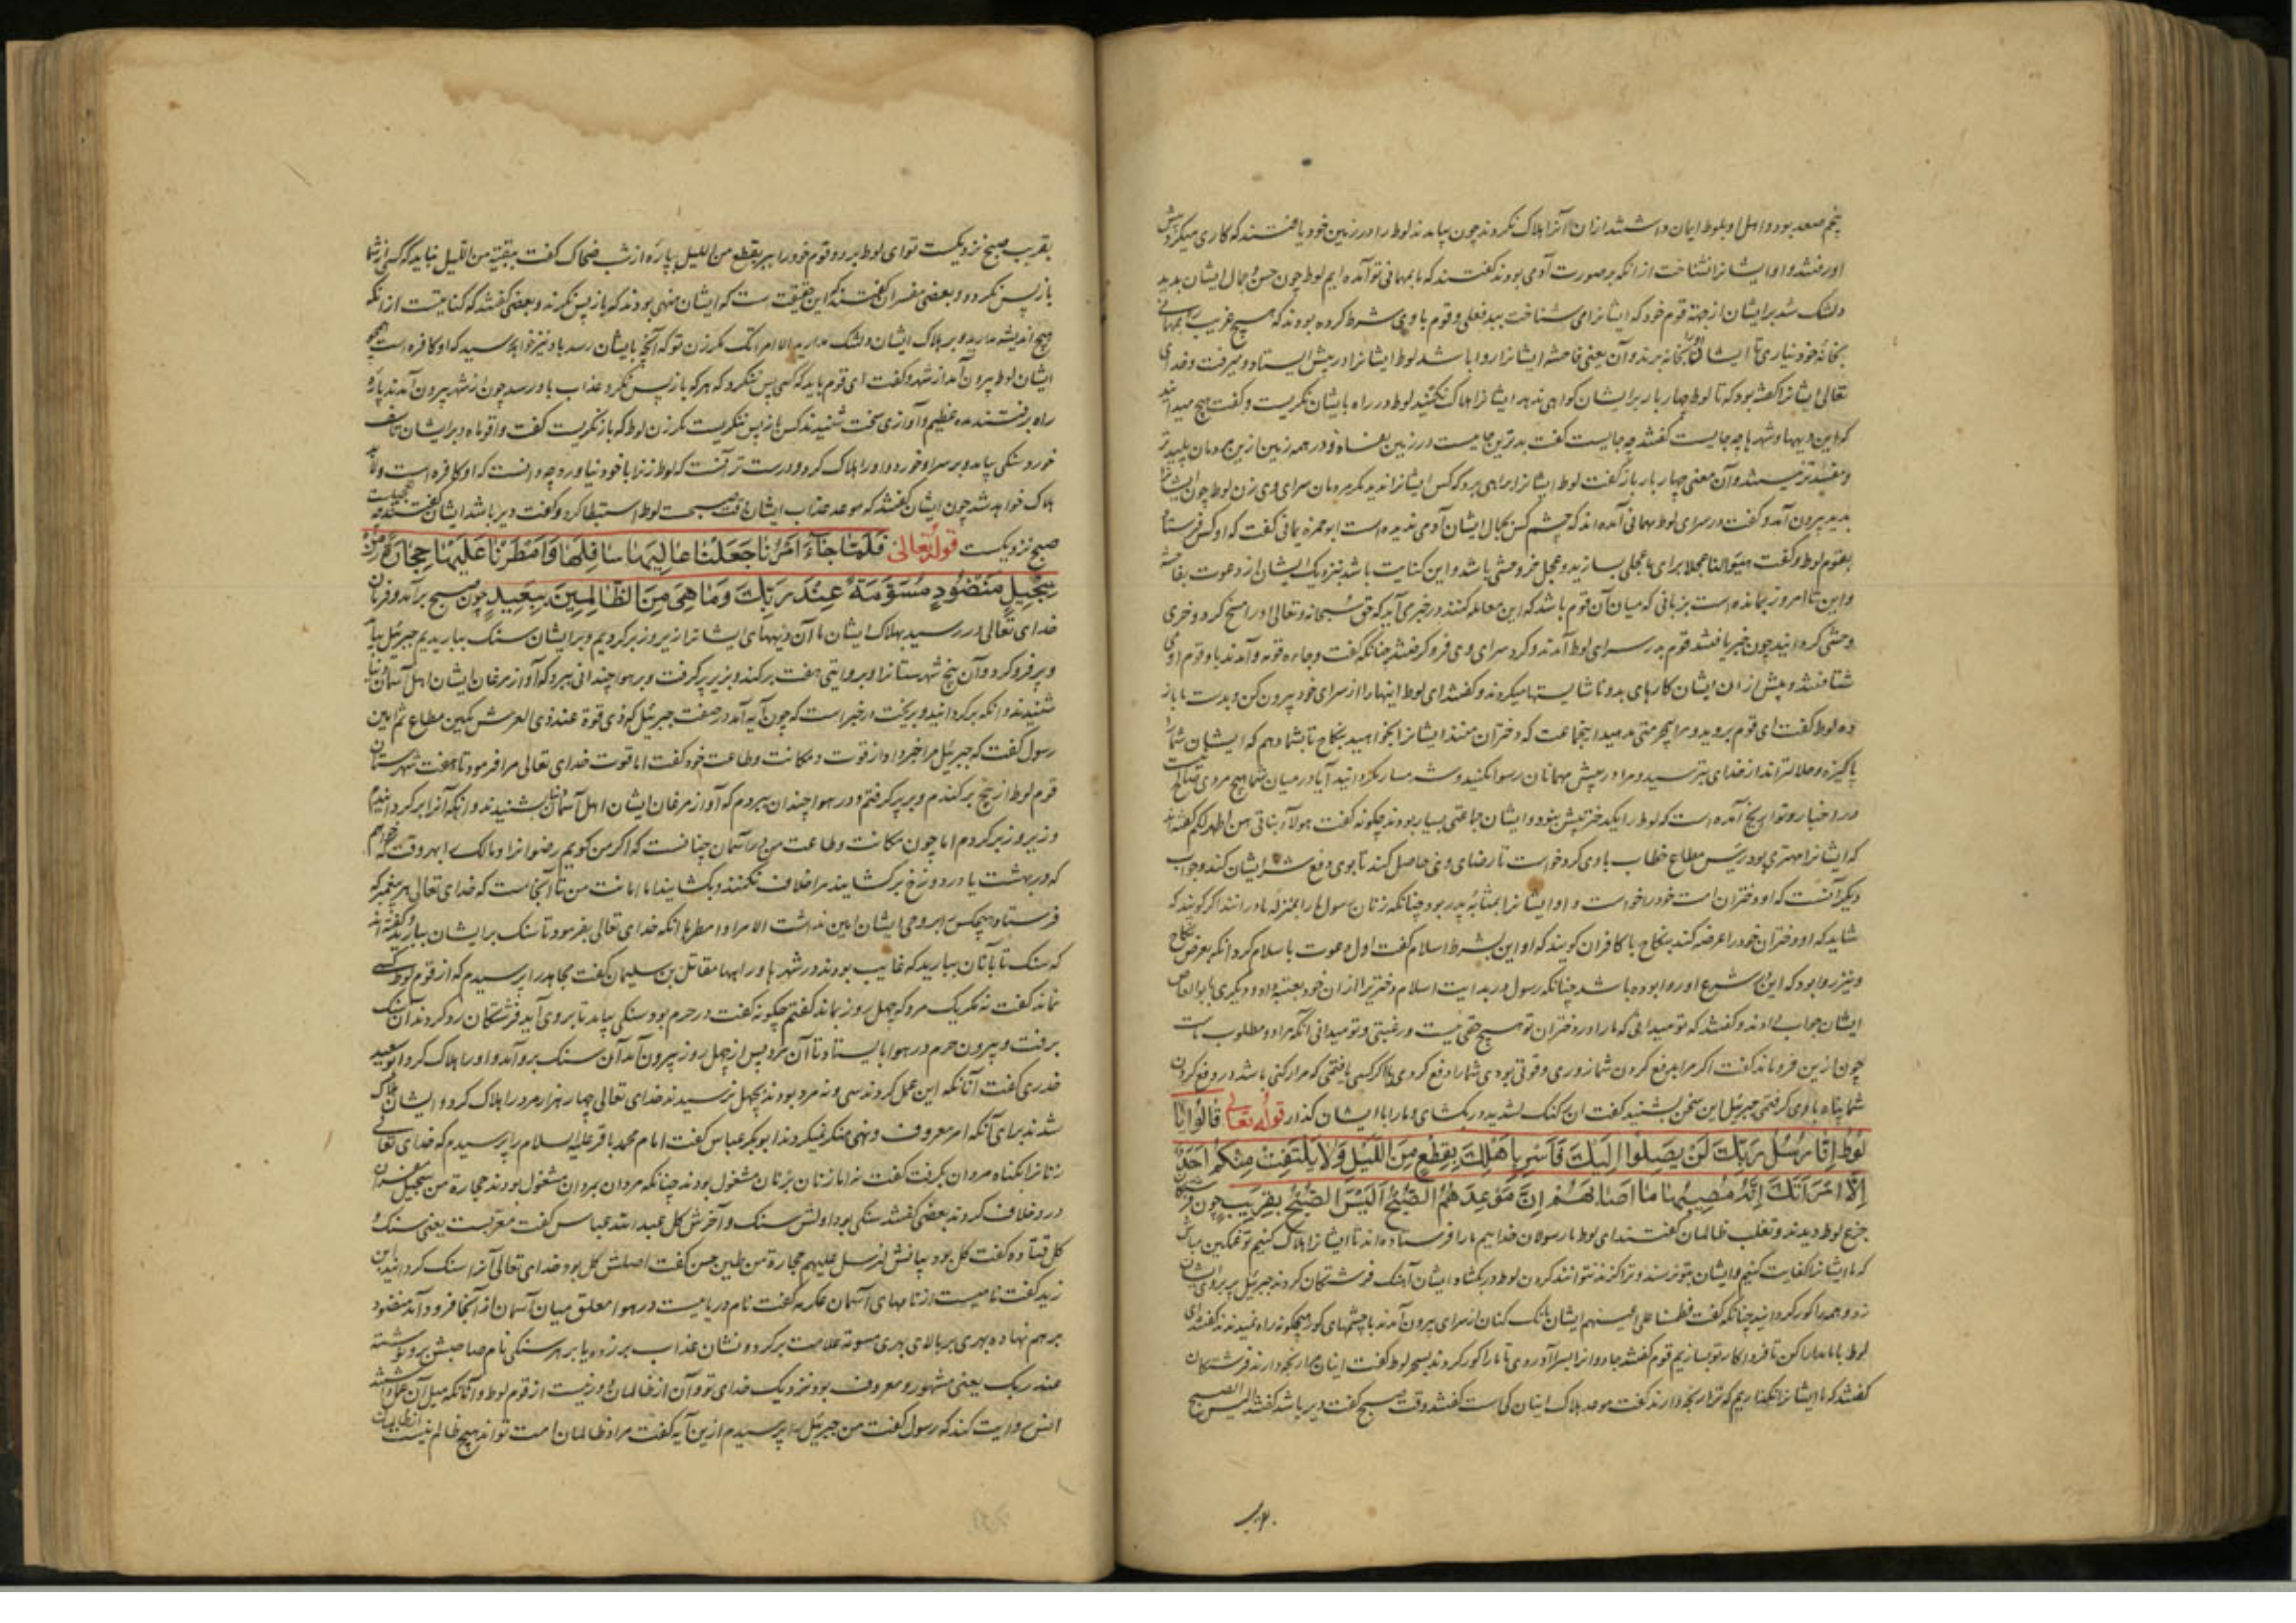 پنجم صعد بود و اهل او بلوط ایمان داشتند ازان آنرا هلاک نکردند چون بیامدند لوط را در زمین خود یافتند که کاری میکرد پیش
او رفتند و او ایشانرا نشناخت از آنکه بر صورت آدمی بودند گفتند که ما بمهمانی تو آمده ایم لوط چون حسن و جمال ایشان بدید
دلتنک شد برایشان از جهة قوم خود که ایشانرا می شناخت ببد فعلی و قوم با وی شرط کرده بودند که هیچ غریب را بمهمانی
بخانه خود نیاری تا ایشان بخانه برند و آن یعنی فاحشه ایشانرا روا باشد لوط ایشانرا در پیش ایستاد و میرفت و خدای
تعالی ایشانرا گفته بود که تا لوط چهار بار برایشان کواهی ندهد ایشانرا هلاک نکنید لوط در راه بایشان نکریست و گفت هیچ میدانید
که این دیهها و شهرها چه جایست گفتند چه جایست گفت بدترین جایست در زمین و در همه زمین ازین مردمان پلیدتر
و مفسدتر نیستند و آن معنی چهار بار باز گفت لوط ایشانرا براهی برد که کس ایشانرا ندید مکر مردمان سرای وی زن لوط چون ایشانرا
بدید بیرون آمد و گفت در سرای لوط مهمانی آمده اند که چشم کس بجمال ایشان آدمی ندیده است ابو حمزه ثمالی گفت که او کس فرستاد
بقوم لوط و گفت هیئوا لنا عجلا برای ما عجلی بسازید و عجل خر وحشی باشد و این کنایت باشد بنزدیک ایشان از دعوت بفاحشه
و این تا امروز بمانده است بزبانی که میان آن قوم باشد که این معامله کنند در خبری آید که حق سبحانه و تعالی او را مسخ کرد و خری
وحشی کردانید چون خبر یافتند قوم بدر سرای لوط آمدند و کرد سرای وی فرو کرفتند چنانکه گفت و جاءه قومه و آمدند باو قوم او می
شتافتند و پیش از ان ایشان کارهای بد و ناشایستها میکردند و گفتند ای لوط اینهارا از سرای خود بیرون کن و بدست ما باز
ده لوط گفت ای قوم بروید و مرا حرمتی بدهید اینجماعت که دختران منند ایشانرا بخواهید بنکاح تا بشما دهم که ایشان شمارا
پاکیزه و حلالتراند از خدای بترسید و مرا در پیش مهمانان رسوا مکنید و شرمسار مکردانید آیا در میان شما هیچ مردی صالح نیست
در اخبار و تواریخ آمده است که لوط را یکدختر بیش نبود و ایشان جماعتی بسیار بودند چکونه گفت هولاء بناتی هن اطهر لکم گفته اند
که ایشانرا مهتری بود رئیس مطاع خطاب با وی کرد و خواست تا رضای وی حاصل کند تا بوی دفع شر ایشان کند و جواب
دیکر آنست که او دختران امت خود را خواست و او ایشانرا بمثابه پدر بود چنانکه زنان رسول ما را بمنزله مادرانند اکر کویند که
شاید که او دختران خود را عرضه کند بنکاح با کافران کویند که او این بشرط اسلام گفت اول دعوت باسلام کرد آنکه بعرض نکاح
و نیز روا بود که این در شرع او روا بوده باشد چنانکه رسول در بدایت اسلام دختریرا ازان خود بعتبه داد و دیکری بابو العاص
ایشان جواب دادند و گفتند که تو میدانی که مارا در دختران تو هیچ حقی نیست و رغبتی و تو میدانی آنکه مراد و مطلوب ماست
چون ازین فروماند گفت اکر مرا بدفع کردن شما زوری و قوتی بودی شمارا دفع کردمی یا اکر کسی یافتمی که مرا رکنی باشد در دفع کردن
شما پناه با وی کرفتمی جبرئیل این سخن بشنید گفت ان رکنک لشدید در بکشای و مارا با ایشان کذار قوله تعالی قَالُوا يَا
لُوطُ إِنَّا رُسُلُ رَبِّكَ لَنْ يَصِلُوا إِلَيْكَ فَأَسْرِ بِأَهْلِكَ بِقِطْعٍ مِنَ اللَّيْلِ وَلَا يَلْتَفِتْ مِنْكُمْ أَحَدٌ
إِلَّا امْرَأَتَكَ إِنَّهُ مُصِيبُهَا مَا أَصَابَهُمْ إِنَّ مَوْعِدَهُمُ الصُّبْحُ أَلَيْسَ الصُّبْحُ بِقَرِيبٍ چون فرشتکان
جزع لوط دیدند و تغلب ظالمان گفتند ای لوط ما رسولان خداییم مارا فرستاده اند تا ایشانرا هلاک کنیم تو غمکین مباش
که ما ایشانرا کفایت کنیم و ایشان بتو نرسند و ترا کزند نتوانند کردن لوط در بکشاد ایشان آهنک فرشتکان کردند جبرئیل پر بر روی ایشان
زد و همه را کور کردانید چنانکه گفت فطمسنا علی اعینهم ایشان بانک کنان از سرای بیرون آمدند با چشمهای کور هیچکونه راه نمیدیدند گفتند ای
لوط باما مدارا کن تا فردا کار تو بسازیم قوم گفتند جادوانرا بسرا آوردی تا مارا کور کردند بسحر لوط گفت اینان مرا رنجه دارند فرشتکان
گفتند که ما ایشانرا نکذاریم که ترا رنجه دارند گفت موعد هلاک اینان کی است گفتند وقت صبح گفت دیر باشد گفتند الیس الصبح
بقریب صبح نزدیکست تو ای لوط برو و قوم خود را ببر بقطع من اللیل بپارۀ از شب ضحاک گفت ببقیة من اللیل نباید که کسی از شما
باز پس نکرد و بعضی مفسران گفتند که این حقیقت است که ایشان منهی بودند که باز پس نکرند و بعضی گفتند که کنایتست از انکه
هیچ اندیشه مدارید و بر هلاک ایشان دلتنک مدارید الا امراتک مکر زن تو که آنچه بایشان رسد باو نیز خواهد رسید که او کافره است همچو
ایشان لوط بیرون آمد از شهر و گفت ای قوم باید که کسی پس ننکرد که هرکه باز پس نکرد عذاب باو رسد چون از شهر بیرون آمدند پارۀ
راه برفتند هده عظیم و آوازی سخت شنیدند کس باز پس ننکریست مکر زن لوط که باز نکریست گفت وا قوماه و برایشان تاسف
خورد سنکی بیامد و بر سر او خورد و او را هلاک کرد و درست تر آنست که لوط زنرا با خود نیاورد چه دانست که او کافره است و
هلاک خواهد شد چون ایشان گفتند که موعد عذاب ایشان وقت صبحست لوط استبطا کرد و گفت دیر باشد ایشان گفتند
صبح نزدیکست قوله تعالی فَلَمَّا جَاءَ أَمْرُنَا جَعَلْنَا عَالِيَهَا سَافِلَهَا وَأَمْطَرْنَا عَلَيْهَا حِجَارَةً مِنْ
سِجِّيلٍ مَنْضُودٍ مُسَوَّمَةً عِنْدَ رَبِّكَ وَمَا هِيَ مِنَ الظَّالِمِينَ بِبَعِيدٍ چون صبح برآمد و فرمان
خدای تعالی در رسید بهلاک ایشان ما آن دیههای ایشانرا زیر و زبر کردیم و برایشان سنک بباریدیم جبرئیل بیامد
و پر فرو کرد و آن پنج شهرستانرا و بروایتی هفت برکند و بزیر پر کرفت و بر هوا چندانی ببرد که آواز مرغان ایشان اهل آسمان دنیا
شنیدند و آنکه برکردانید و بریخت در خبر است که چون آیه آمد در صفت جبرئیل که ذی قوة عند ذی العرش مکین مطاع ثم امین
رسول گفت که جبرئیل مرا خبر داد از قوت و مکانت و طاعت خود گفت اما قوت خدای تعالی مرا فرمود تا هفت شهرستان
قوم لوط از بیخ برکندم و بر پر کرفتم و در هوا چندان ببردم که آواز مرغان ایشان اهل آسمان بشنیدند و آنکه آنرا برکردانیدم
و زیر و زبر کردم اما چون مکانت و طاعت من بر آسمان چنانست که اکر من کویم رضوانرا و مالک را بهر وقت که خواهم
که در بهشت یا در دوزخ برکشایند مرا خلاف نکنند و بکشایند اما امانت من تا آنجاست که خدای تعالی هر پیغمبر که
فرستاد هیچکس بر وحی ایشان امین نداشت الا مرا و امطرنا آنکه خدای تعالی بفرمود تا سنک برایشان ببارید گفته اند
که سنک تا بآنان ببارید که غایب بودند در شهرها و راهها مقاتل بن سلیمان گفت مجاهد را پرسیدم که از قوم لوط کسی
نماند گفت نه مکر یک مرد که چهل روز بماند گفتم چکونه گفت در حرم بود سنکی بیامد تا بروی آید فرشتکان رد کردند آن سنک
برفت و بیرون حرم در هوا بایستاد تا آن مرد پس از چهل روز بیرون آمد آن سنک برو آمد و او را هلاک کرد ابو سعید
خدری گفت آنانکه این عمل کردند سی و نه مرد بودند بچهل نرسیدند خدای تعالی چهار هزار مرد را هلاک کرد و ایشان هلاک
شدند برای آنکه امر معروف و نهی منکر نمیکردند ابوبکر عباس گفت امام محمد باقر علیه السلام را پرسیدم که خدای تعالی
زنانرا بکناه مردان بکرفت گفت نه اما زنان بزنان مشغول بودند چنانکه مردان بمردان مشغول بودند حجارة من سجیل مفسران
درو خلاف کردند بعضی گفتند سنکی بود اولش سنک و آخرش کل عبدالله عباس گفت معربست یعنی سنک و
کل قتاده گفت کل بود بیانش لنرسل علیهم حجارة من طین حسن گفت اصلش کل بود خدای تعالی آنرا سنک کردانید ابن
زید گفت نامیست از نامهای آسمان عکرمه گفت نام دریایست در هوا معلق میان آسمان از آنجا فرود آمد منضود
بر هم نهاده بهری بر بالای بهری مسومة علامت برکرده و نشان عذاب بر زده یا بر هر سنکی نام صاحبش برو نوشته
عند ربک یعنی مشهور و معروف بود نزدیک خدای تو و آن از ظالمان دور نیست از قوم لوط و آنانکه میل آن عمل داشتند
انس روایت کند که رسول گفت من جبرئیل را پرسیدم ازین آیه گفت مراد ظالمان امت تواند هیچ ظالم نیست